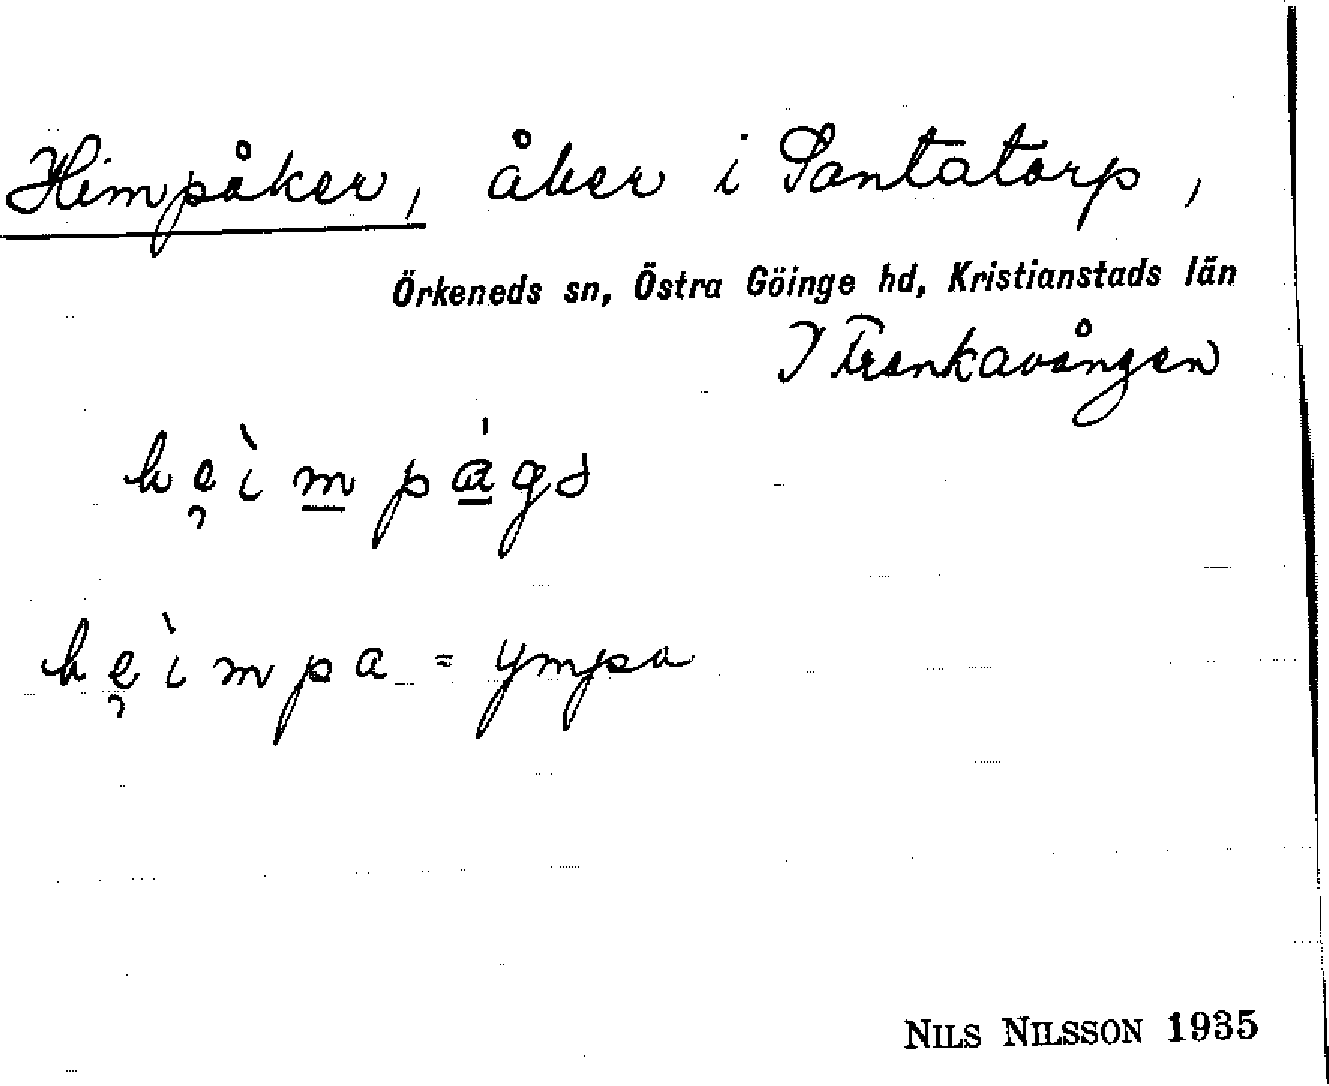 Himpåker, åker i Santatorp,
Örkeneds sn, Östra Göinge hd, Kristianstads län
I Trenkavången
hę̀impágs
hę̀impa = ympa
NILS NILSSON 1935